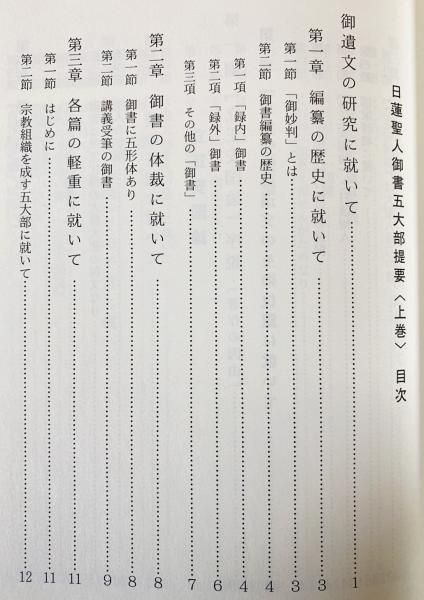 日蓮聖人御書五大部提要〈上巻〉 目次
御遺文の研究に就いて……………1
第一章 編纂の歴史に就いて……………3
第一節 「御妙判」とは……………3
第二節 御書編纂の歴史……………4
第一項 「録内」御書……………4
第二項 「録外」御書……………6
第三項 その他の「御書」……………7
第二章 御書の体裁に就いて……………8
第一節 御書に五形体あり……………8
第二節 講義受筆の御書……………9
第三章 各篇の軽重に就いて……………11
第一節 はじめに……………11
第二節 宗教組織を成す五大部に就いて……………12